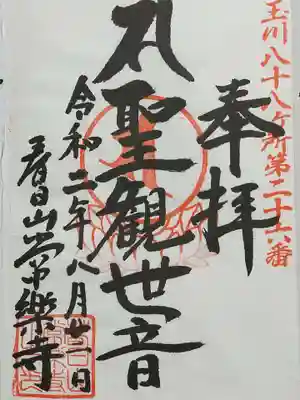 玉川八十八ヶ所第二十六番
奉拝
聖観世音
令和二年八月廿一日
春日山常樂寺